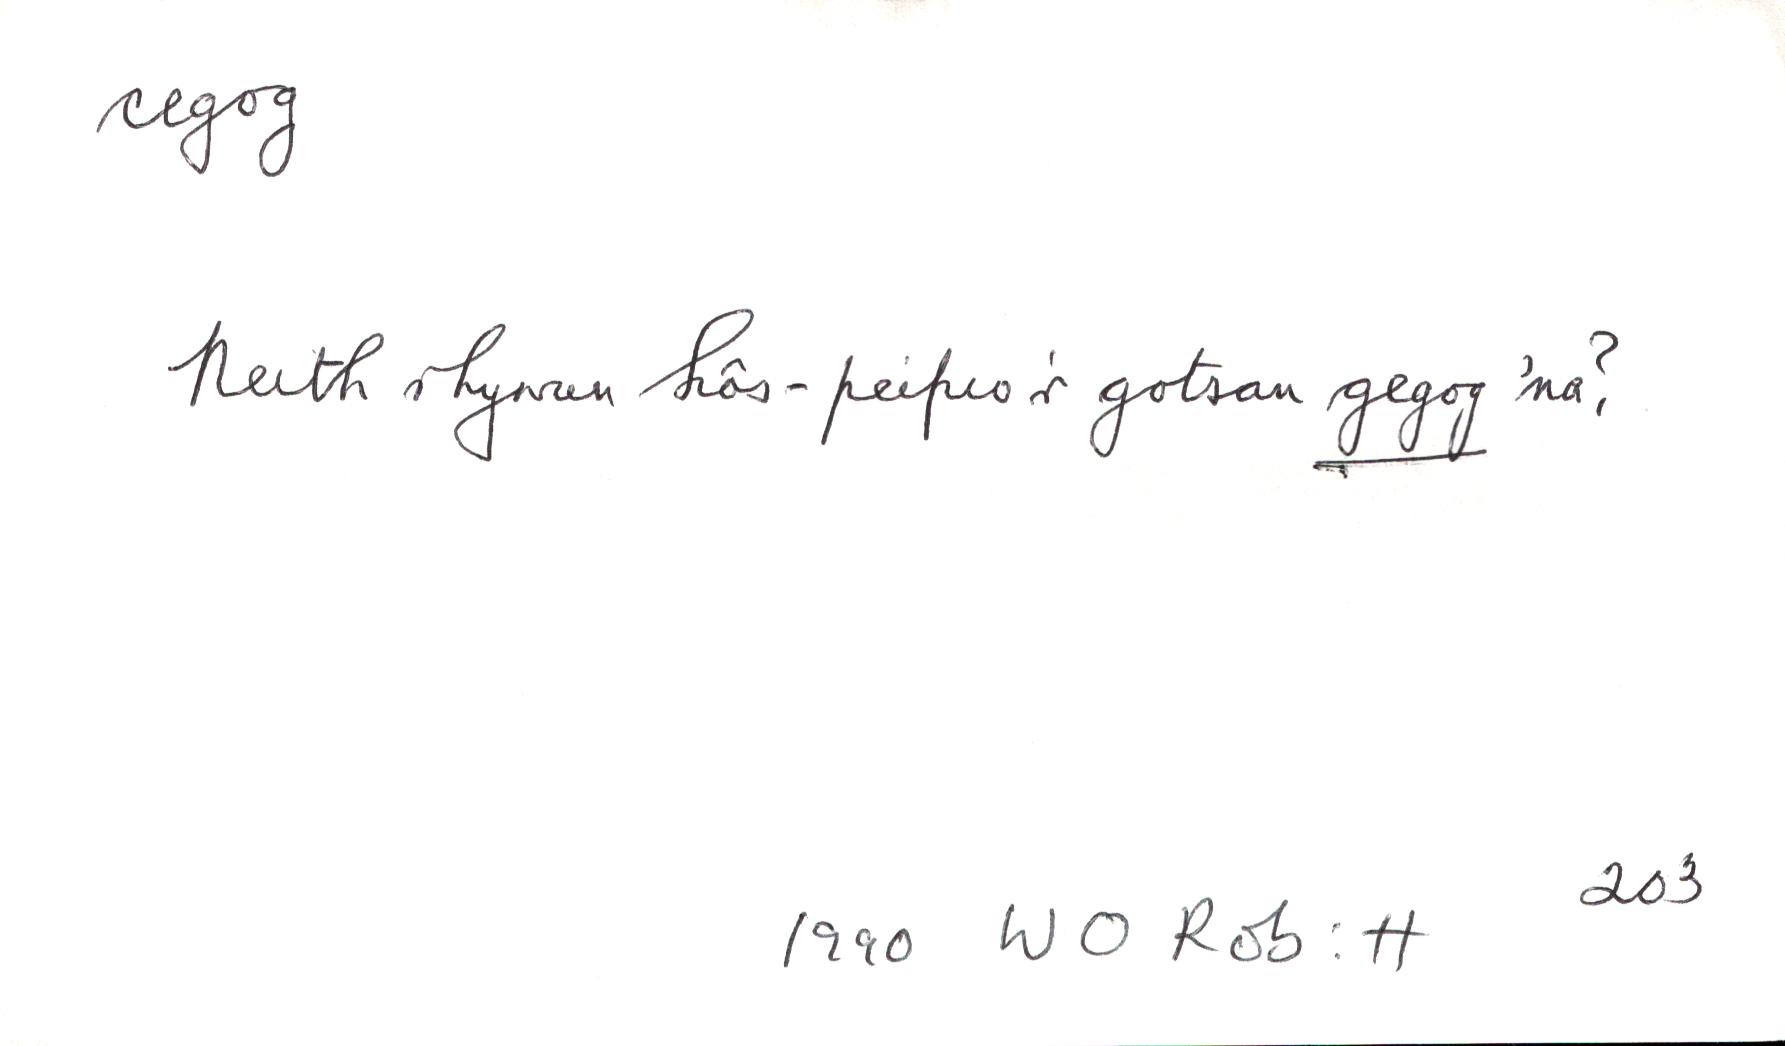 cegog
Neith rhywun hôs-peipio'r gotsan gegog 'na?
203
1990 WO Rob: H